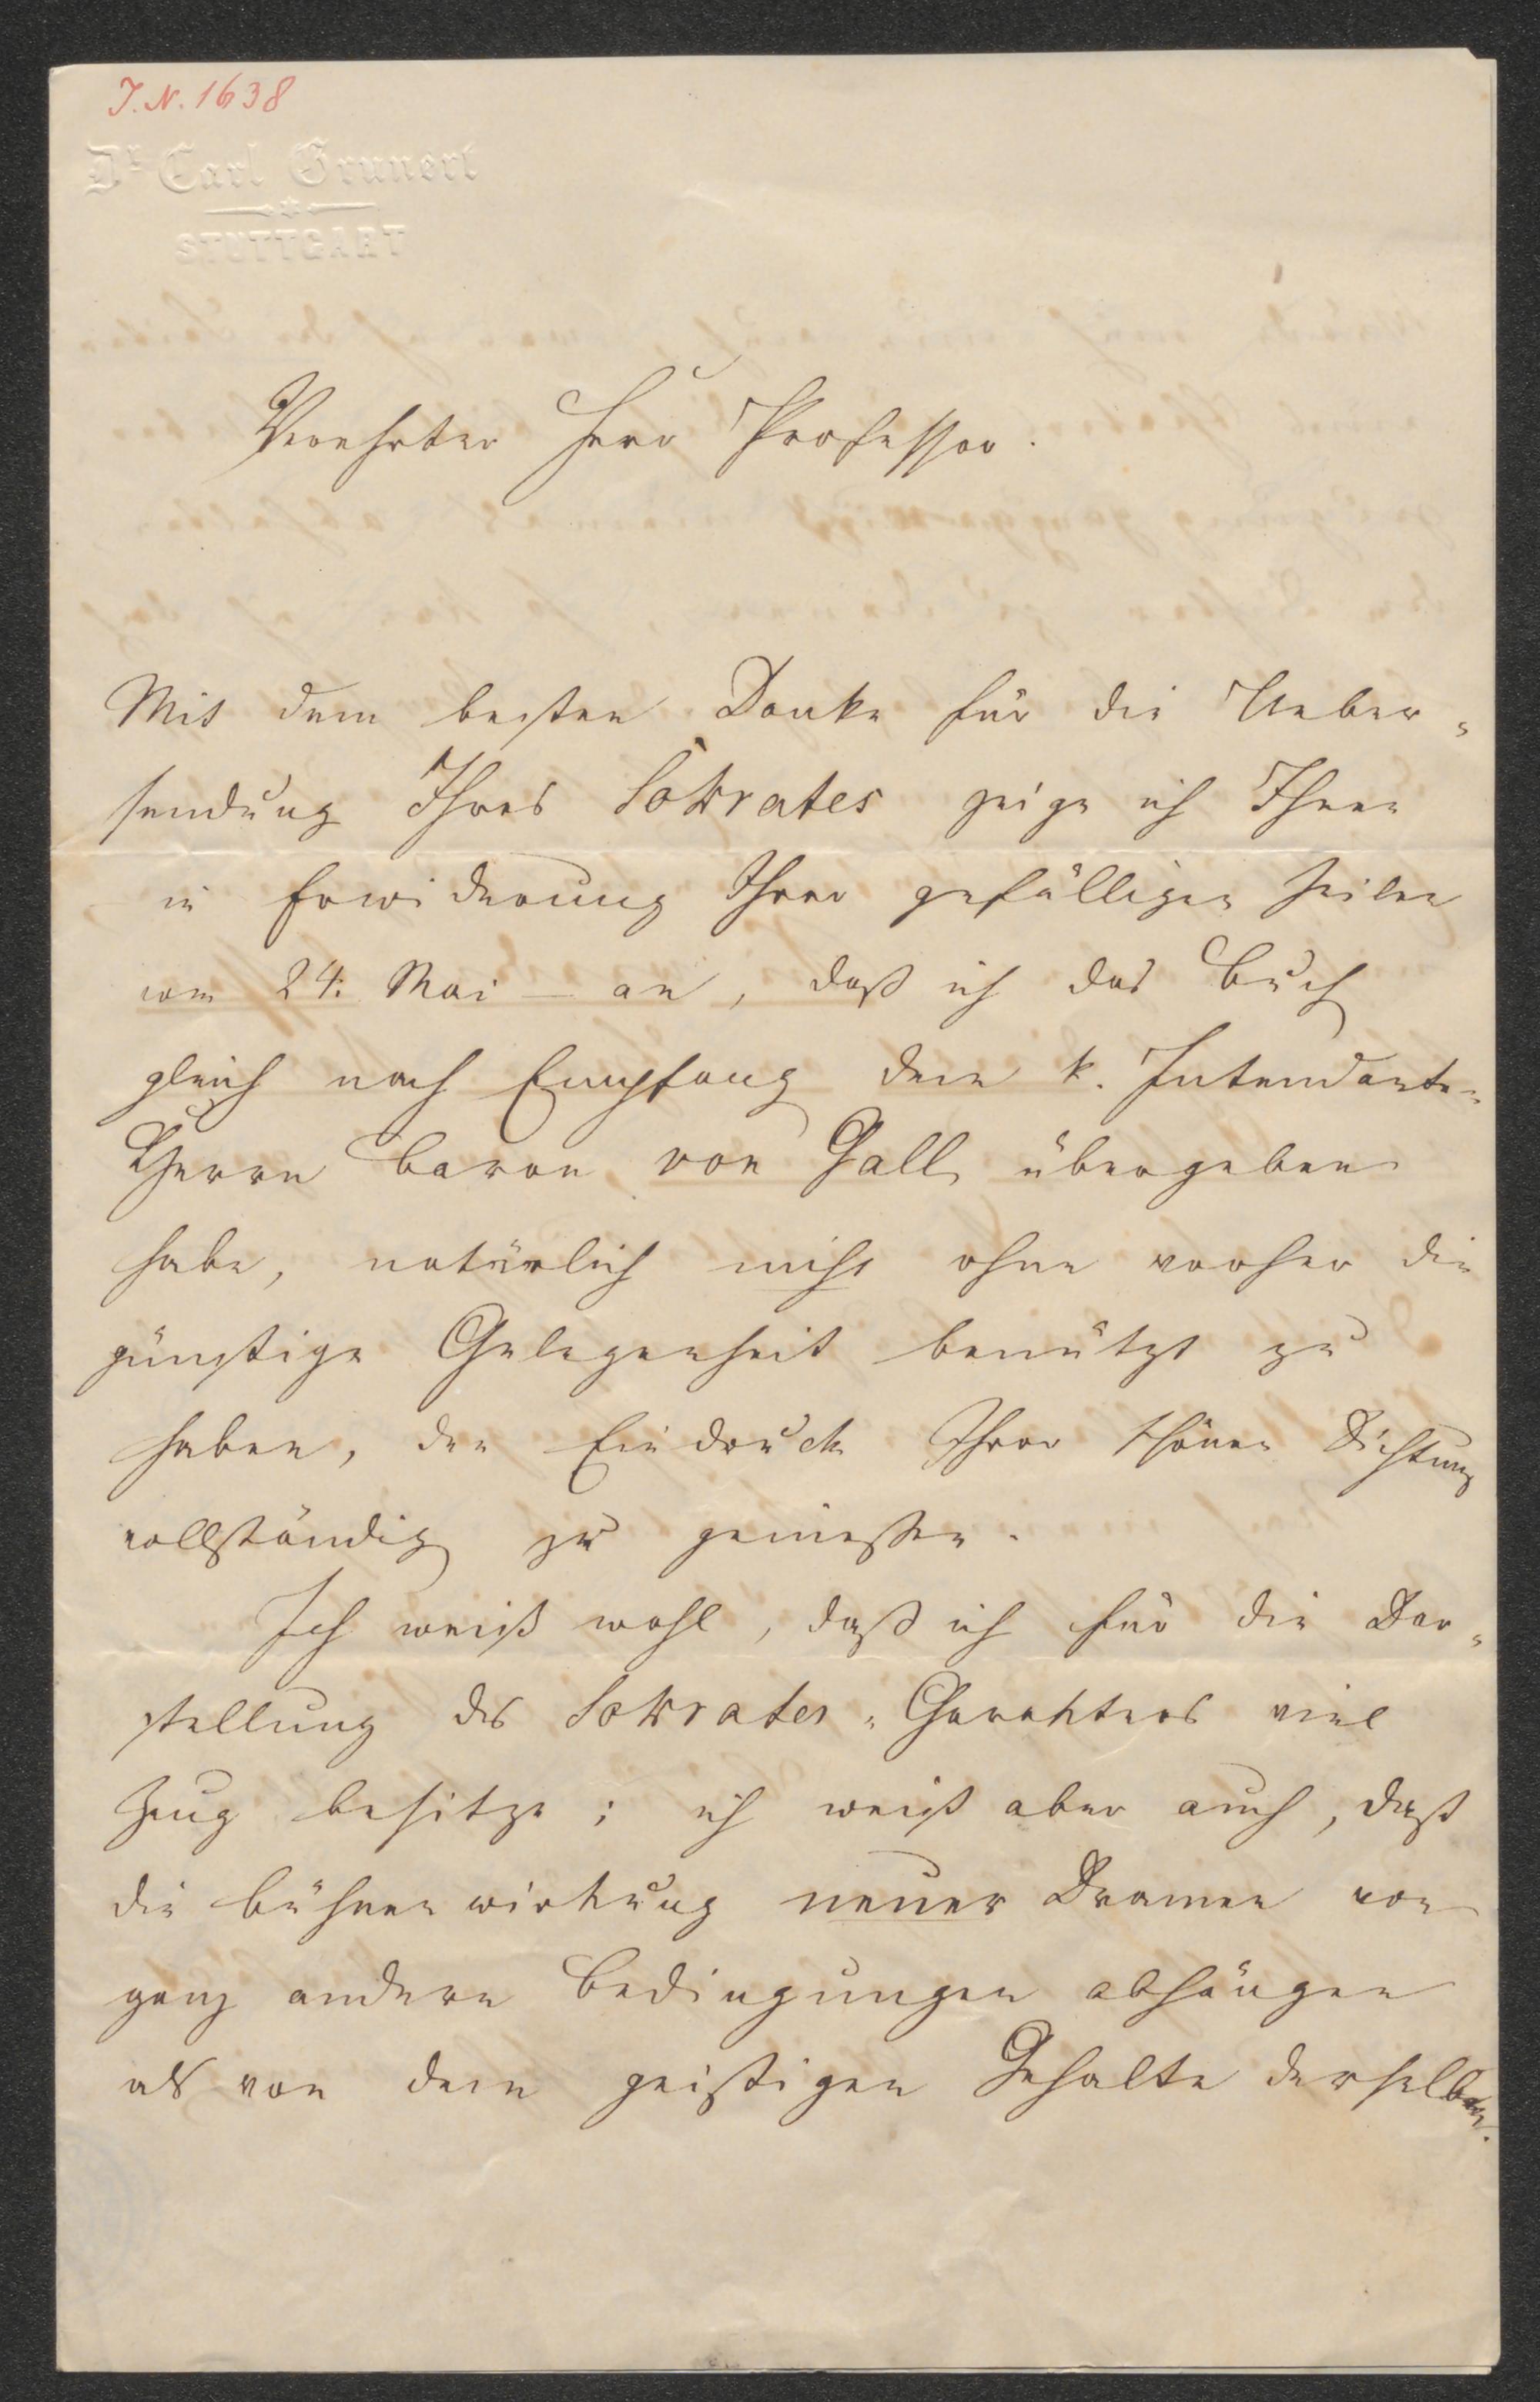 J. N. 1638
Dr Carl Grunert
STUTTGART
Verehrter Herr Professor.
Mit dem besten Danke für die Ueber-
sendung Ihres Sokrates zeige ich Ihnen
in Erwiderung Ihrer gefälligen Zeilen
vom 24: Mai – an, daß ich das Buch
gleich nach Empfang dem k. Intendanten
Herrn Baron von Gall übergeben
habe, natürlich nicht ohne vorher die
günstige Gelegenheit benützt zu
haben, den Eindruck Ihrer schönen Dichtung
vollständig zu genießen.
Ich weiß wohl, daß ich für die Dar-
stellung des Sokrates-Charakters viel
Zeug besitze; ich weiß aber auch, daß
die Bühnenwirkung neuer Dramen von
ganz andern Bedingungen abhängen
als von dem geistigen Gehalte derselben.